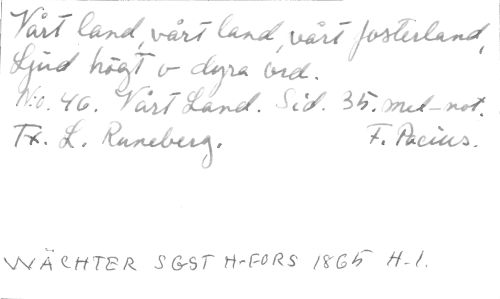 Vårt land, vårt land, vårt fosterland,
Ljud högt o dyra ord.
No. 46. Vårt Land. Sid. 35. med not.
Tx. L. Runeberg. F. Pacius.
WÄCHTER SGST H-FORS 1865 H-1.